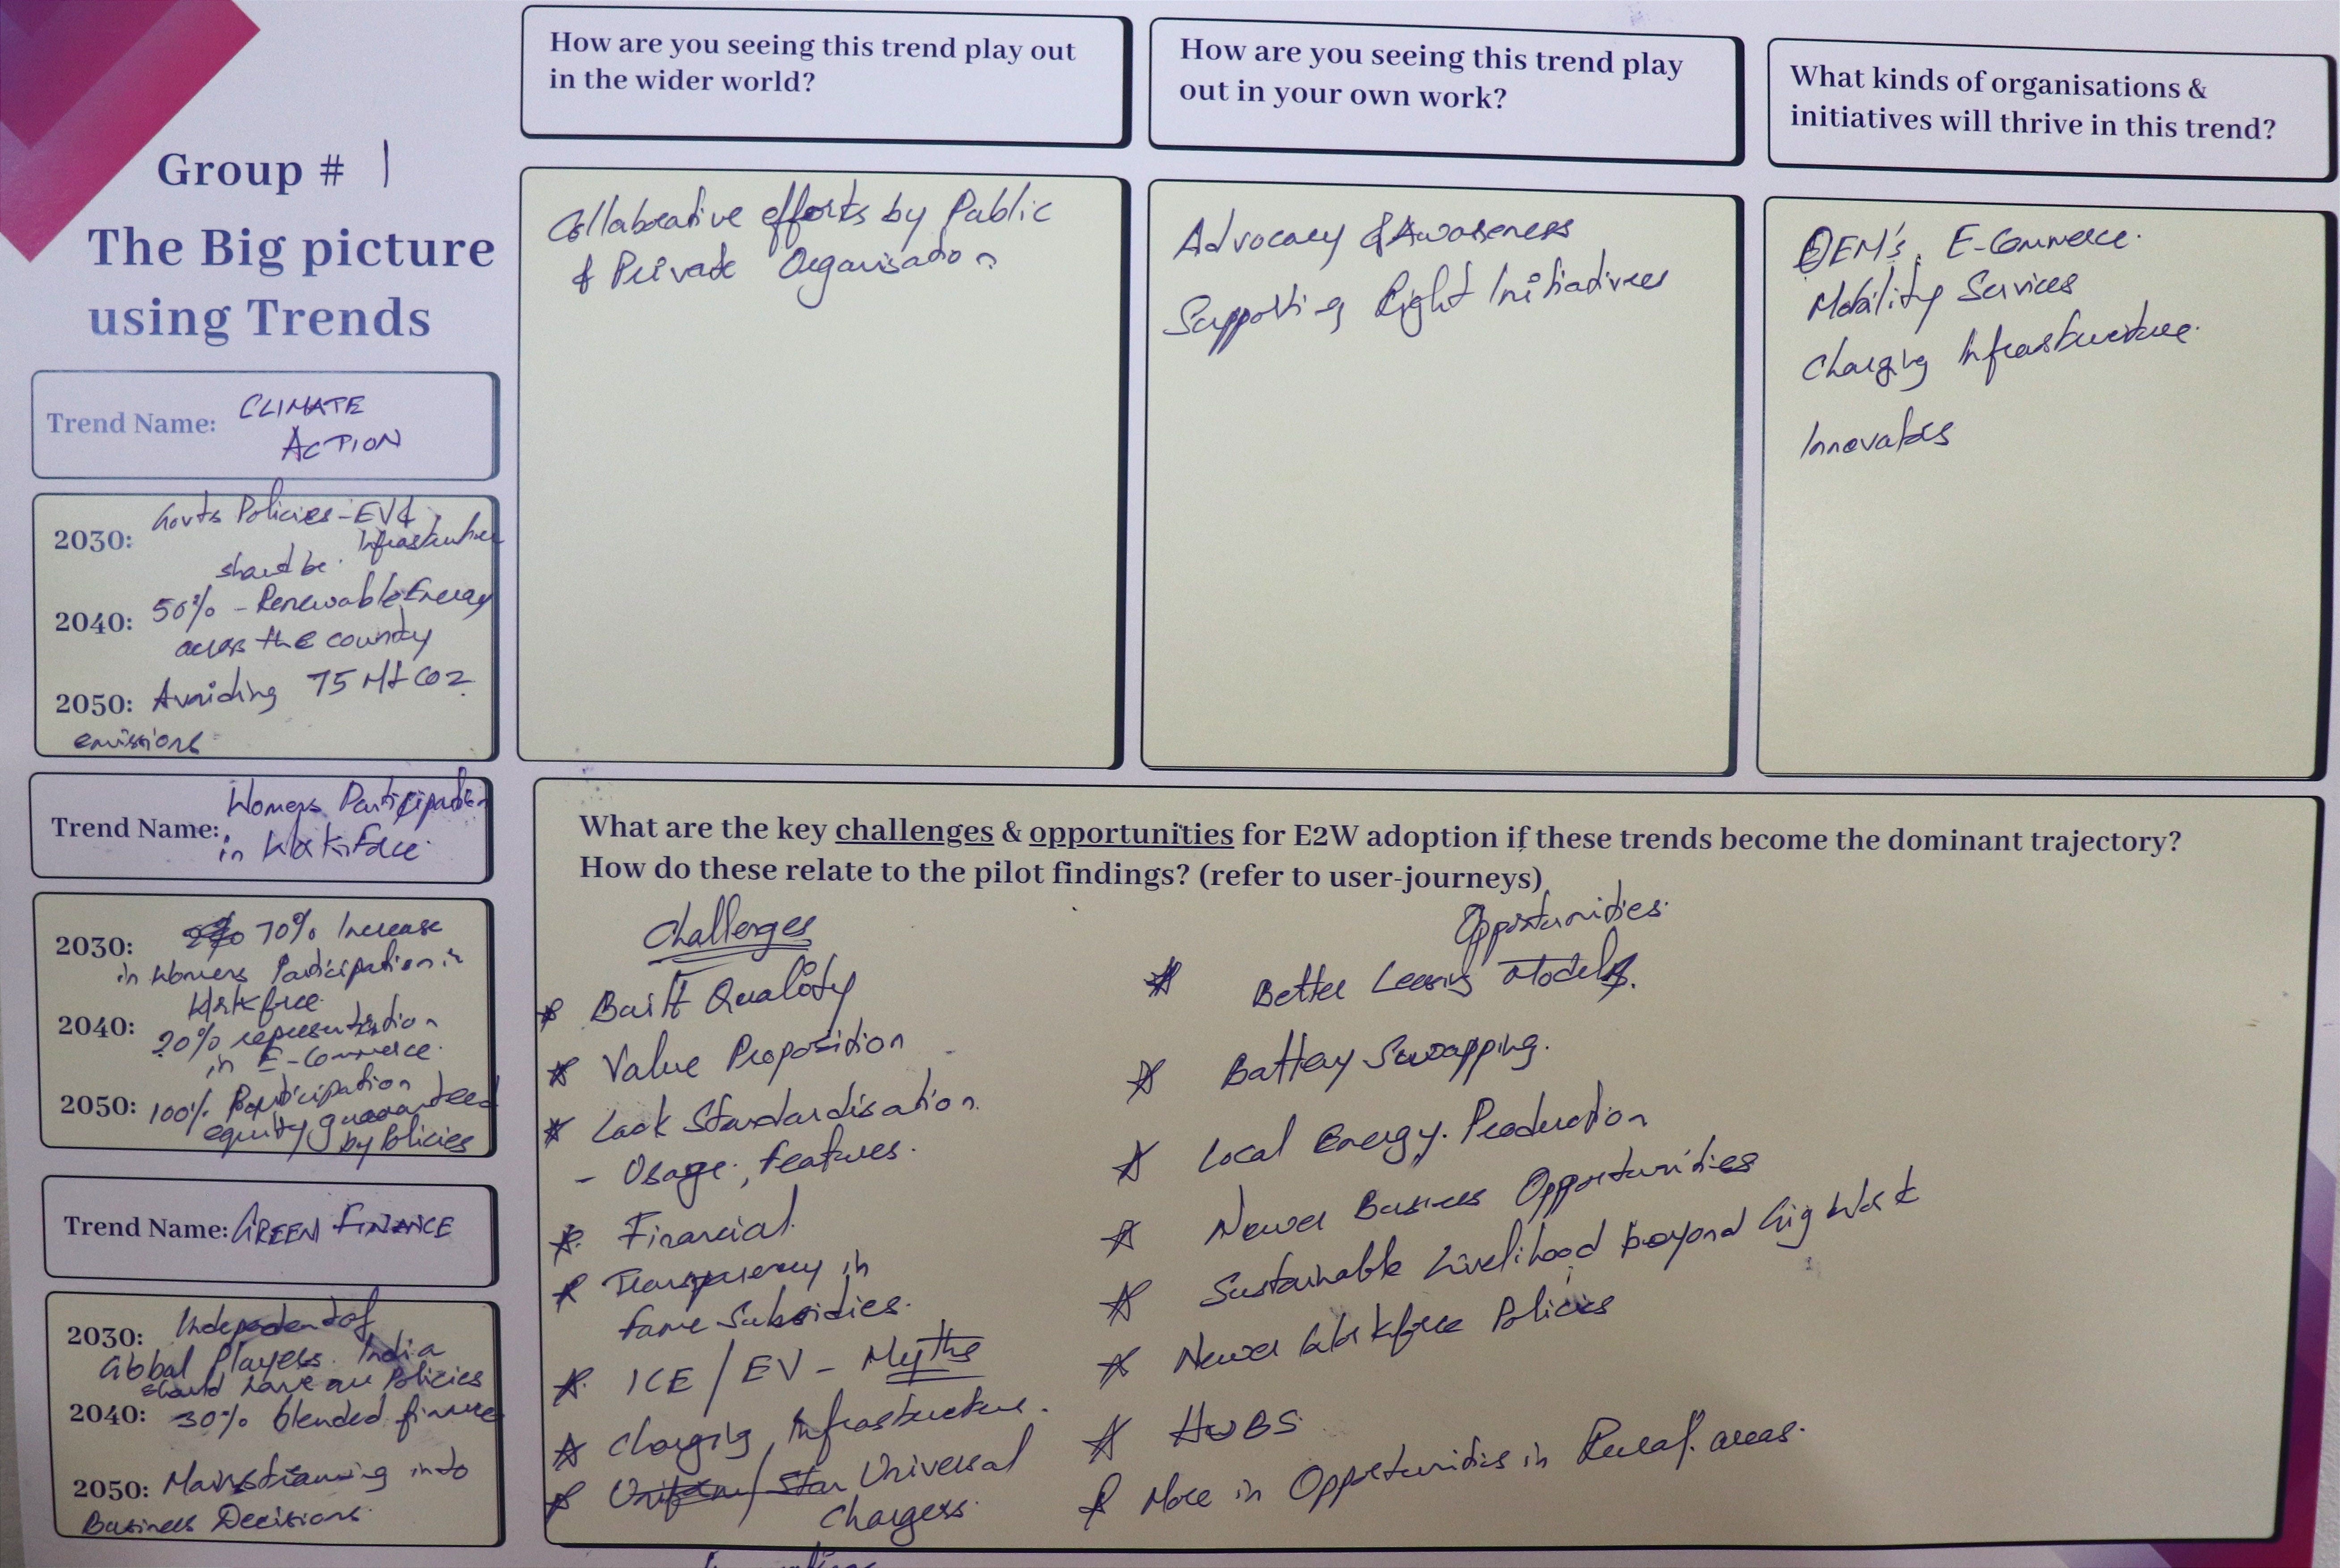 Group # 1
The Big picture
using Trends
Trend Name: CLIMATE
ACTION
2030: Govts Policies - EV &
Infrastructure
should be
2040: 50% - Renewable Energy
across the country
2050: Avoiding 75 Mt CO2
emissions
Trend Name: Womens Participation
in Workforce
2030: 70% Increase
in Womens Participation in
Workforce
2040: 20% representation
in E-Commerce
2050: 100% Participation
equity guaranteed
by Policies
Trend Name: GREEN FINANCE
2030: Independent of
Global Players. India
should have own Policies
2040: 30% blended finance
2050: Mainstreaming into
Business Decisions
How are you seeing this trend play out
in the wider world?
Collaborative efforts by Public
& Private Organisation
How are you seeing this trend play
out in your own work?
Advocacy & Awareness
Supporting Right Initiatives
What kinds of organisations &
initiatives will thrive in this trend?
OEM's, E-Commerce
Mobility Services
Charging Infrastructure
Innovators
What are the key challenges & opportunities for E2W adoption if these trends become the dominant trajectory?
How do these relate to the pilot findings? (refer to user-journeys)
Challenges
* Built Quality
* Value Proposition
* Lack Standardisation
- Usage, features.
* Financial
* Transparency in
fame Subsidies.
* ICE / EV - Myths
* Charging Infrastructure.
* Uniform / Stan Universal
Chargers
Opportunities
* Better Leasing Models.
* Battery Swapping.
* Local Energy Production
* Newer Business Opportunities
* Sustainable Livelihood beyond Gig Work
* Newer Workforce Policies
* HUBS
* More in Opportunities in Rural areas.